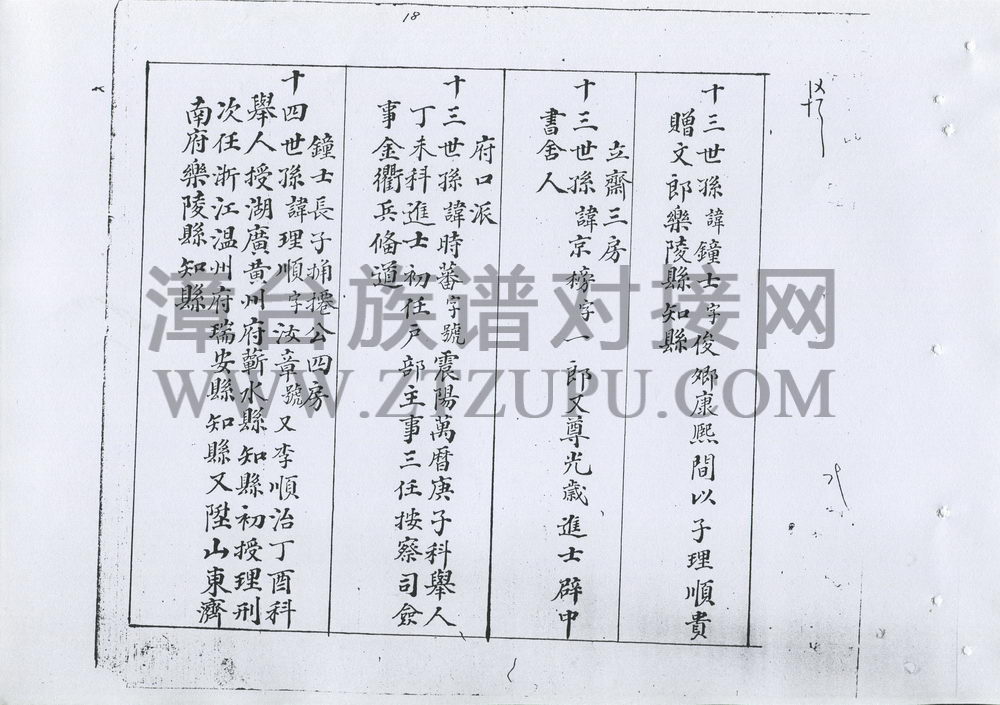 18
十三世孫諱鐘士字俊鄉康熙間以子理順貴
贈文郎樂陵縣知縣
立齋三房
十三世孫諱京榜字一郎又尊光歲進士辟中
書舍人
府口派
十三世孫諱時蕃字號震陽萬曆庚子科舉人
丁未科進士初任户部主事三任按察司僉
事金衢兵俻道
鐘士長子捅遷公四房
十四世孫諱理順字汝章號又李順治丁酉科
舉人授湖廣黄州府蘄水縣知縣初授理刑
次任浙江温州府瑞安縣知縣又陞山東濟
南府樂陵縣知縣
漳台族谱对接网
WWW.ZTZUPU.COM